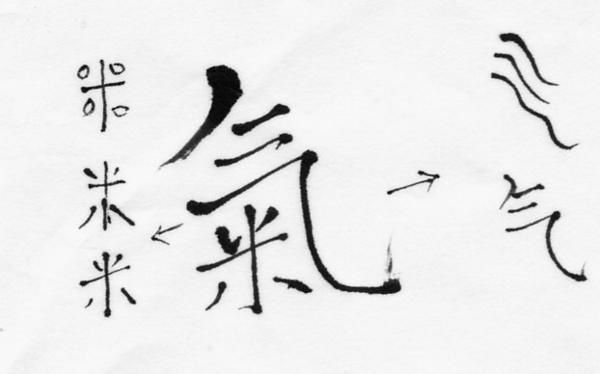 氣
米
米
气